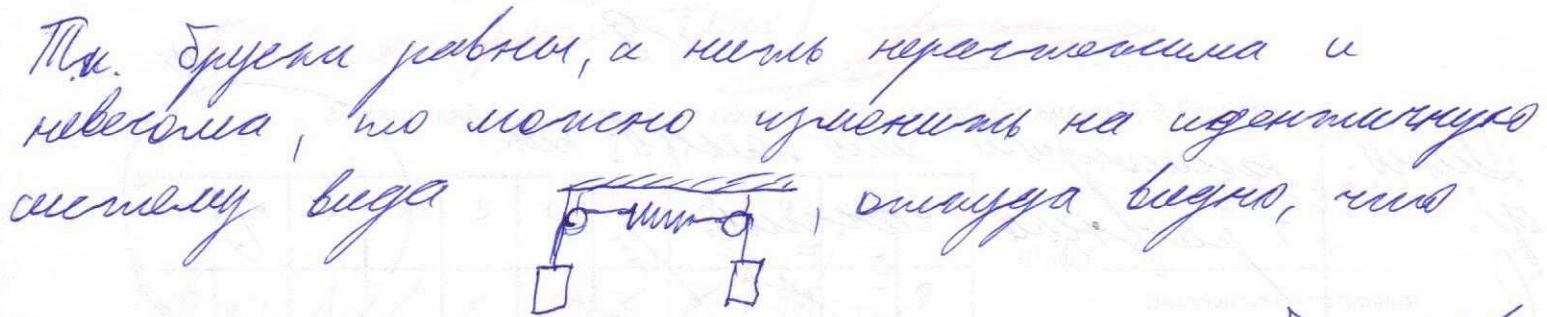 Т.к. бруски равны, а нить нерастяжима и
невесома, то можно изменить на идентичную
систему вида , откуда видно, что